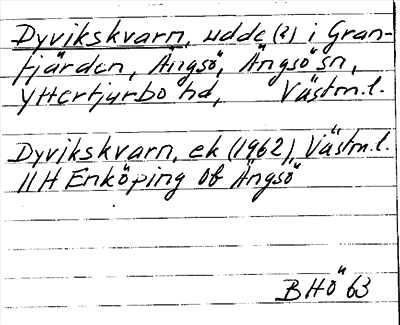 Dyvikskvarn, udde (?) i Gran-
fjärden, Ängsö, Ängsö sn,
Yttertjurbo hd, Västm.l.
Dyvikskvarn, ek (1962), Västm.l.
11H Enköping 0f Ängsö
BHÖ 63